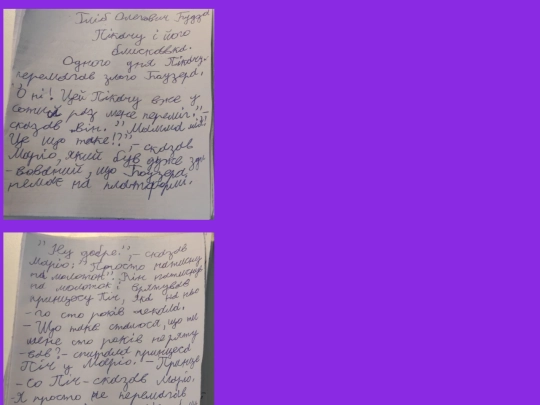 Гліб Олегович Гудзь
Пікачу і його
блискавка.
Одного дня Пікачу
перемагав злого Баузера.
"О ні! Цей Пікачу вже у
сотий раз мене переміг!" -
сказав він. "Мамма мія!
Це що таке!?" - сказав
Маріо, який був дуже зди
-вований, що Баузера
немає на платформі.
"Ну добре." - сказав
Маріо: "Просто натисну
на молоток". Він натиснув
на молоток і врятував
принцесу Піч, яка на ньо
-го сто років чекала.
- Що таке сталося, що ти
мене сто років не ряту
-вав? - спитала принцеса
Піч у Маріо. - Принце
-со Піч - сказав Маріо.
- Я просто не перемагав